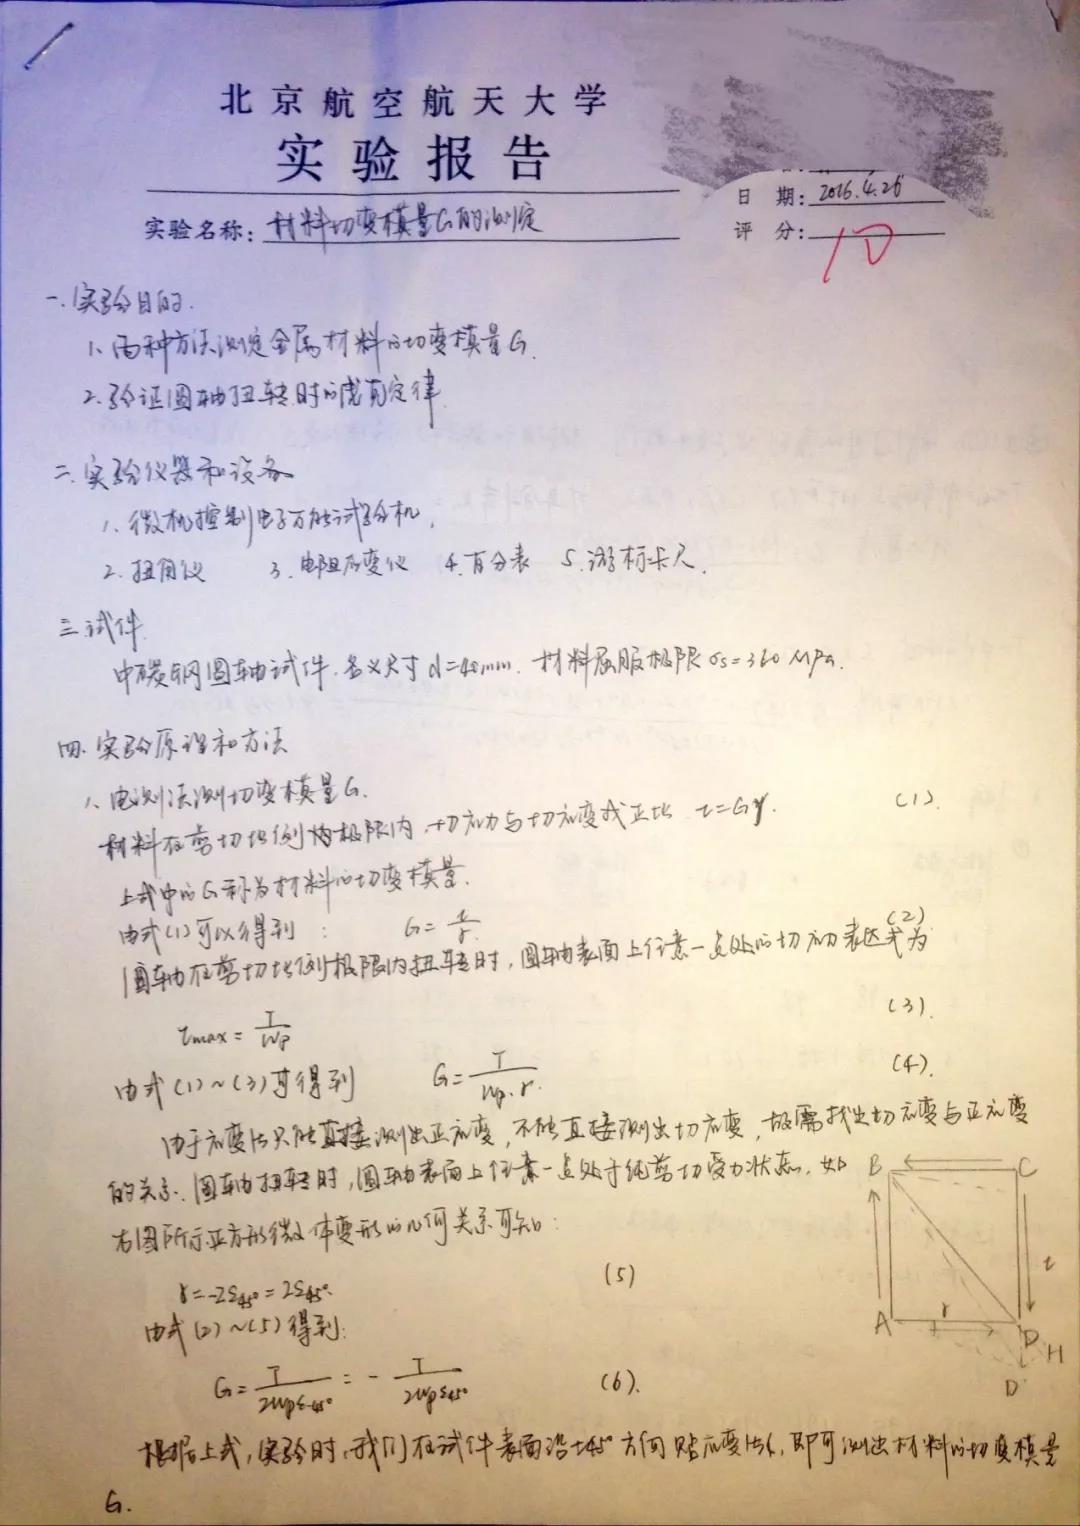 北京航空航天大学
实验报告
日 期: 2016.4.26
实验名称: 材料切变模量G的测定
评 分: 10
一. 实验目的.
1. 两种方法测定金属材料的切变模量G.
2. 验证圆轴扭转时的虎克定律
二. 实验仪器和设备
1. 微机控制电子万能试验机,
2. 扭角仪 3. 电阻应变仪 4. 百分表 5. 游标卡尺.
三. 试件
中碳钢圆轴试件. 名义尺寸 d=40mm. 材料屈服极限 σs=360 MPa.
四. 实验原理和方法
1. 电测法测切变模量G.
材料在剪切比例极限内, 切应力与切应变成正比 τ=Gγ. (1).
上式中的G称为材料的切变模量.
由式(1)可以得到: G=τ/γ. (2)
圆轴在剪切比例极限内扭转时, 圆轴表面上任意一点处的切应力表达式为
τmax=T/Wp (3).
由式(1)~(3)可得到 G=T/(Wp·γ). (4).
由于应变片只能直接测出正应变, 不能直接测出切应变, 故需找出切应变与正应变
的关系. 圆轴扭转时, 圆轴表面上任意一点处于纯剪切受力状态, 如
右图所示正方形微体变形的几何关系可知:
γ=-2ε45°=2ε-45°. (5)
由式(2)~(5)得到:
G=T/(2Wpε-45°)=-T/(2Wpε45°) (6).
B C
τ
A γ D H
D'
根据上式, 实验时, 我们在试件表面沿±45°方向贴应变片, 即可测出材料的切变模量
G.